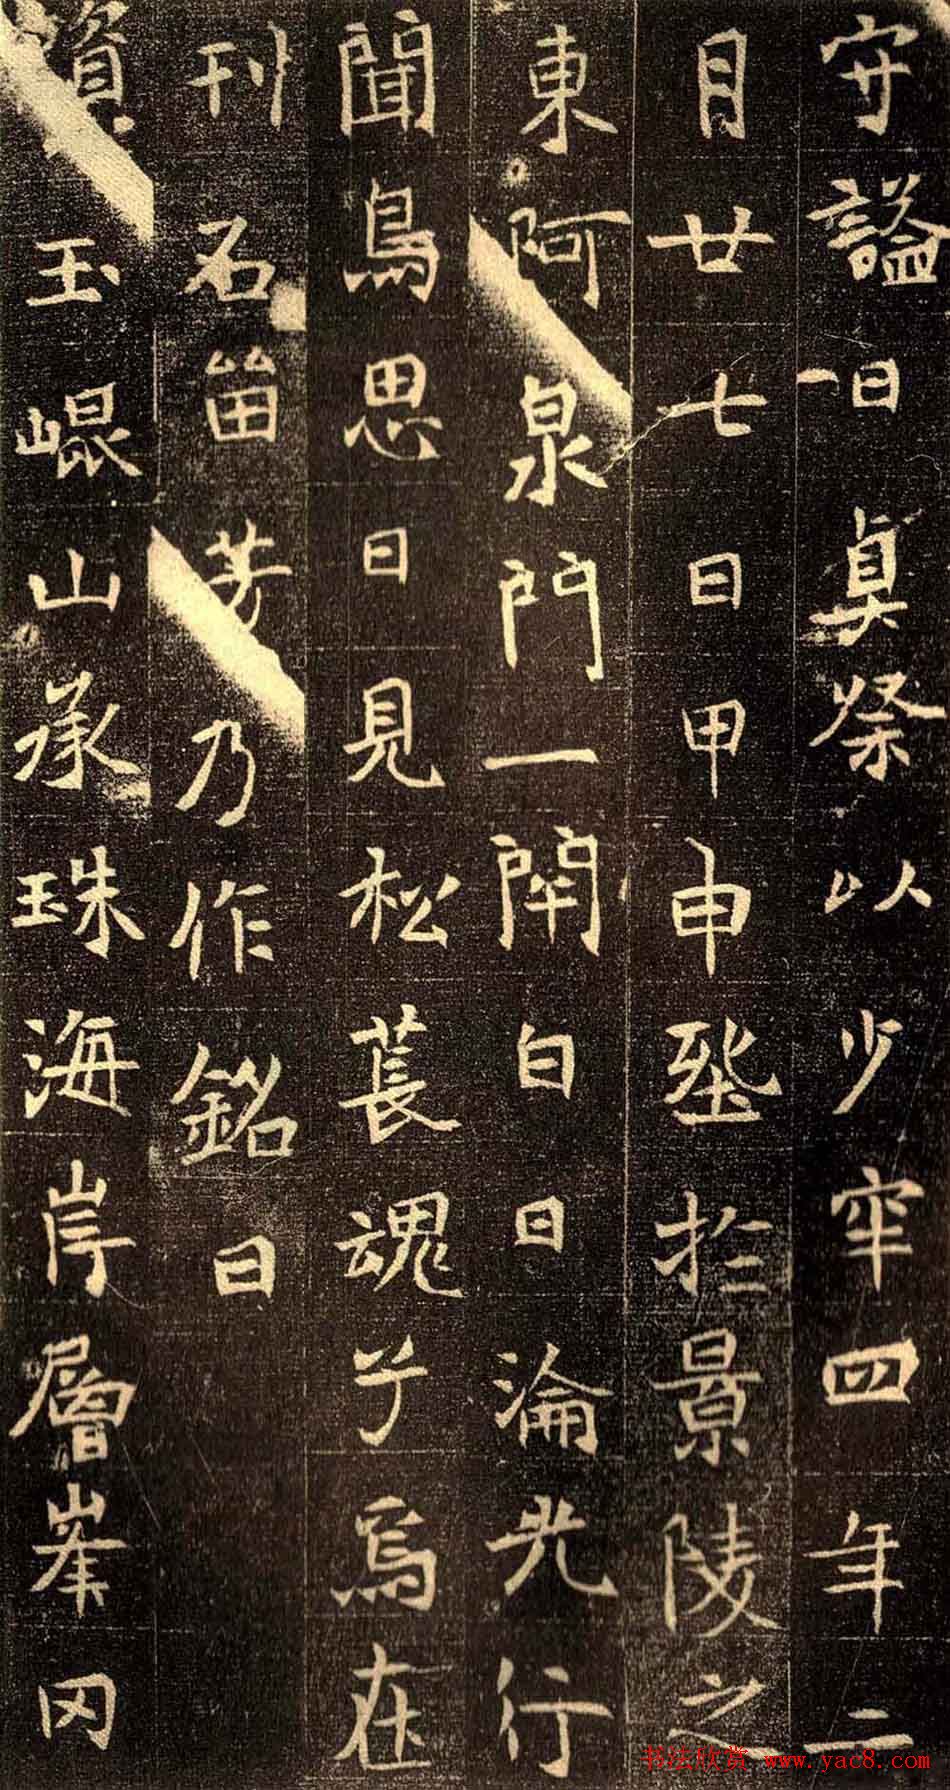 守謚曰真祭以少牢四年二
月廿七日甲申塟於景陵之
東阿泉門一閇白日淪光行
聞鳥思日見松萇魂乎焉在
刊石留芳乃作銘曰
玉崐山承珠海岸層峯冈
书法欣赏 www.yac8.com